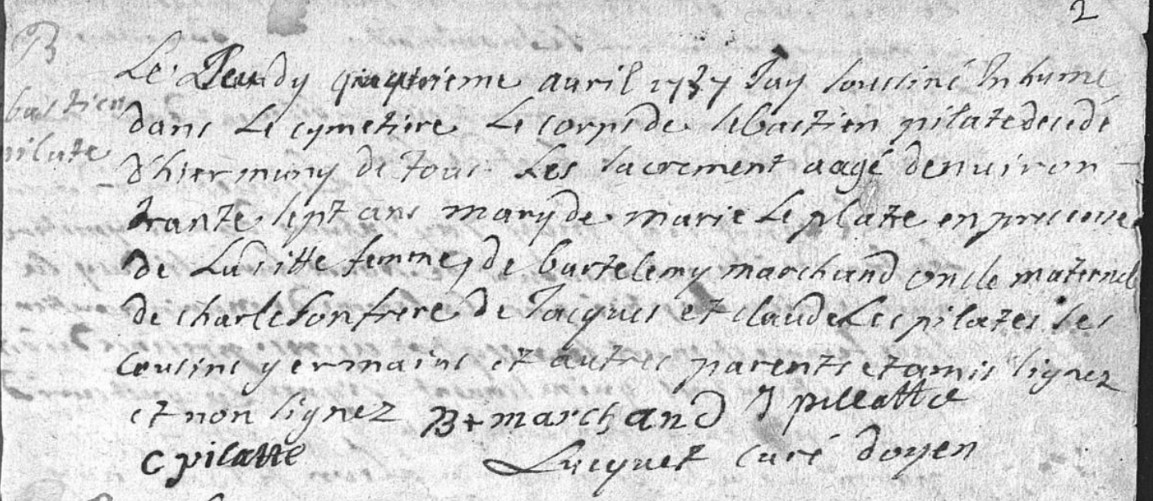 2
B
bastien
pilate
Le Jeudy quatrieme avril 1737 Jay soussiné Inhumé
dans Le cymetire Le corps de sebastien pilate decedé
d'hier muny de Tous Les sacrement aagé denuiron
trante sept ans mary de marie Le platte en presence
de Laditte femme, de bartelemy marchand oncle maternel
de charle son frere de Jacques et claude Les pilates ses
cousins germains et autres parents et amis signez
et non signez B+marchand J pillatte
C pilatte Lucquet curé doyen